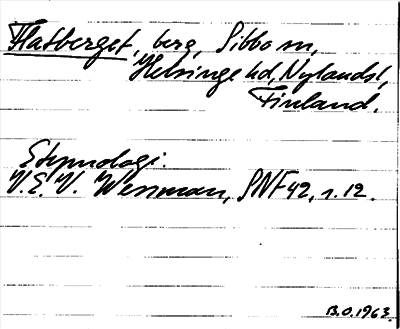 Flatberget, berg, Sibbo sn,
Helsinge hd, Nylands l,
Finland.
Etymologi.
V.E.V. Wessman, SNF 42, s. 12.
B.O. 1963.